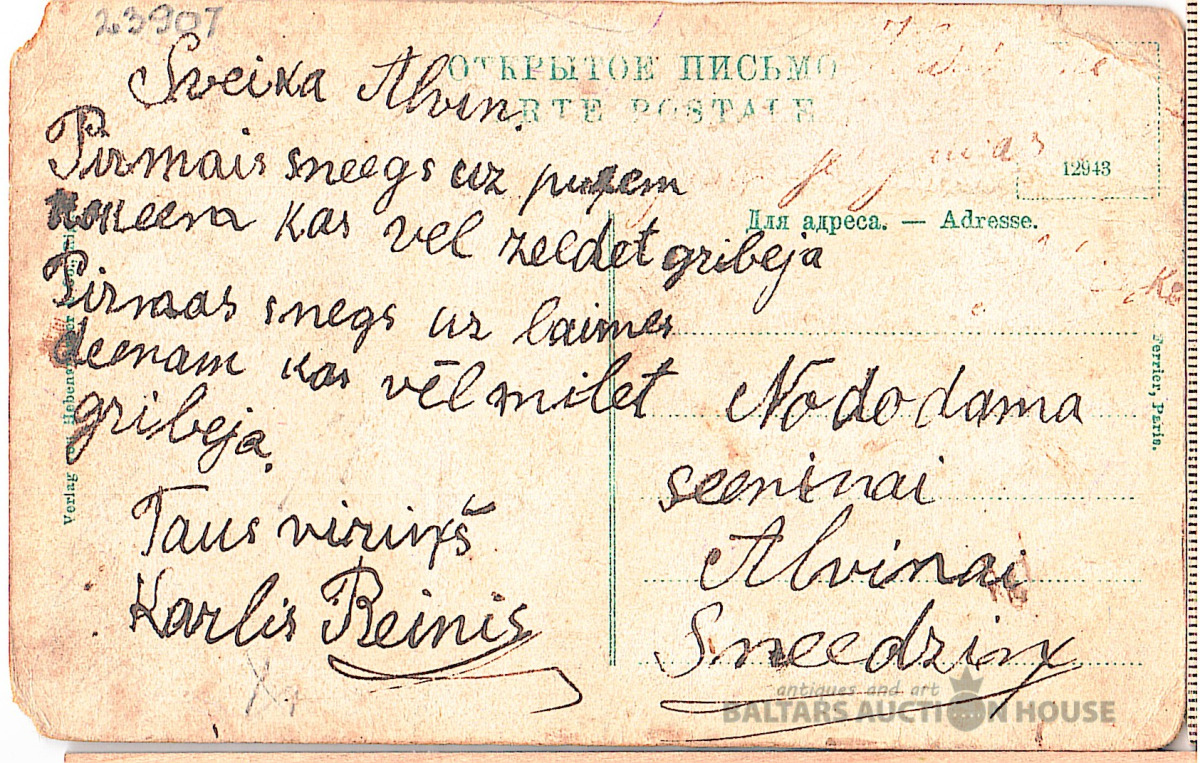 23907
Sveika Alvin.
ОТКРЫТОЕ ПИСЬМО
CARTE POSTALE
12943
Для адреса. — Adresse.
Pirmais sneegs uz puķem
kas vel zeedet gribeja
Pirmas snegs uz laimes
deenam kas vēl milet
gribeja.
Taus viriņš
Karlis Reinis
Nododama
seeninai
Alvinai
Sneedziņ
Verlag
Ferrier, Paris.
antiques and art
BALTARS AUCTION HOUSE